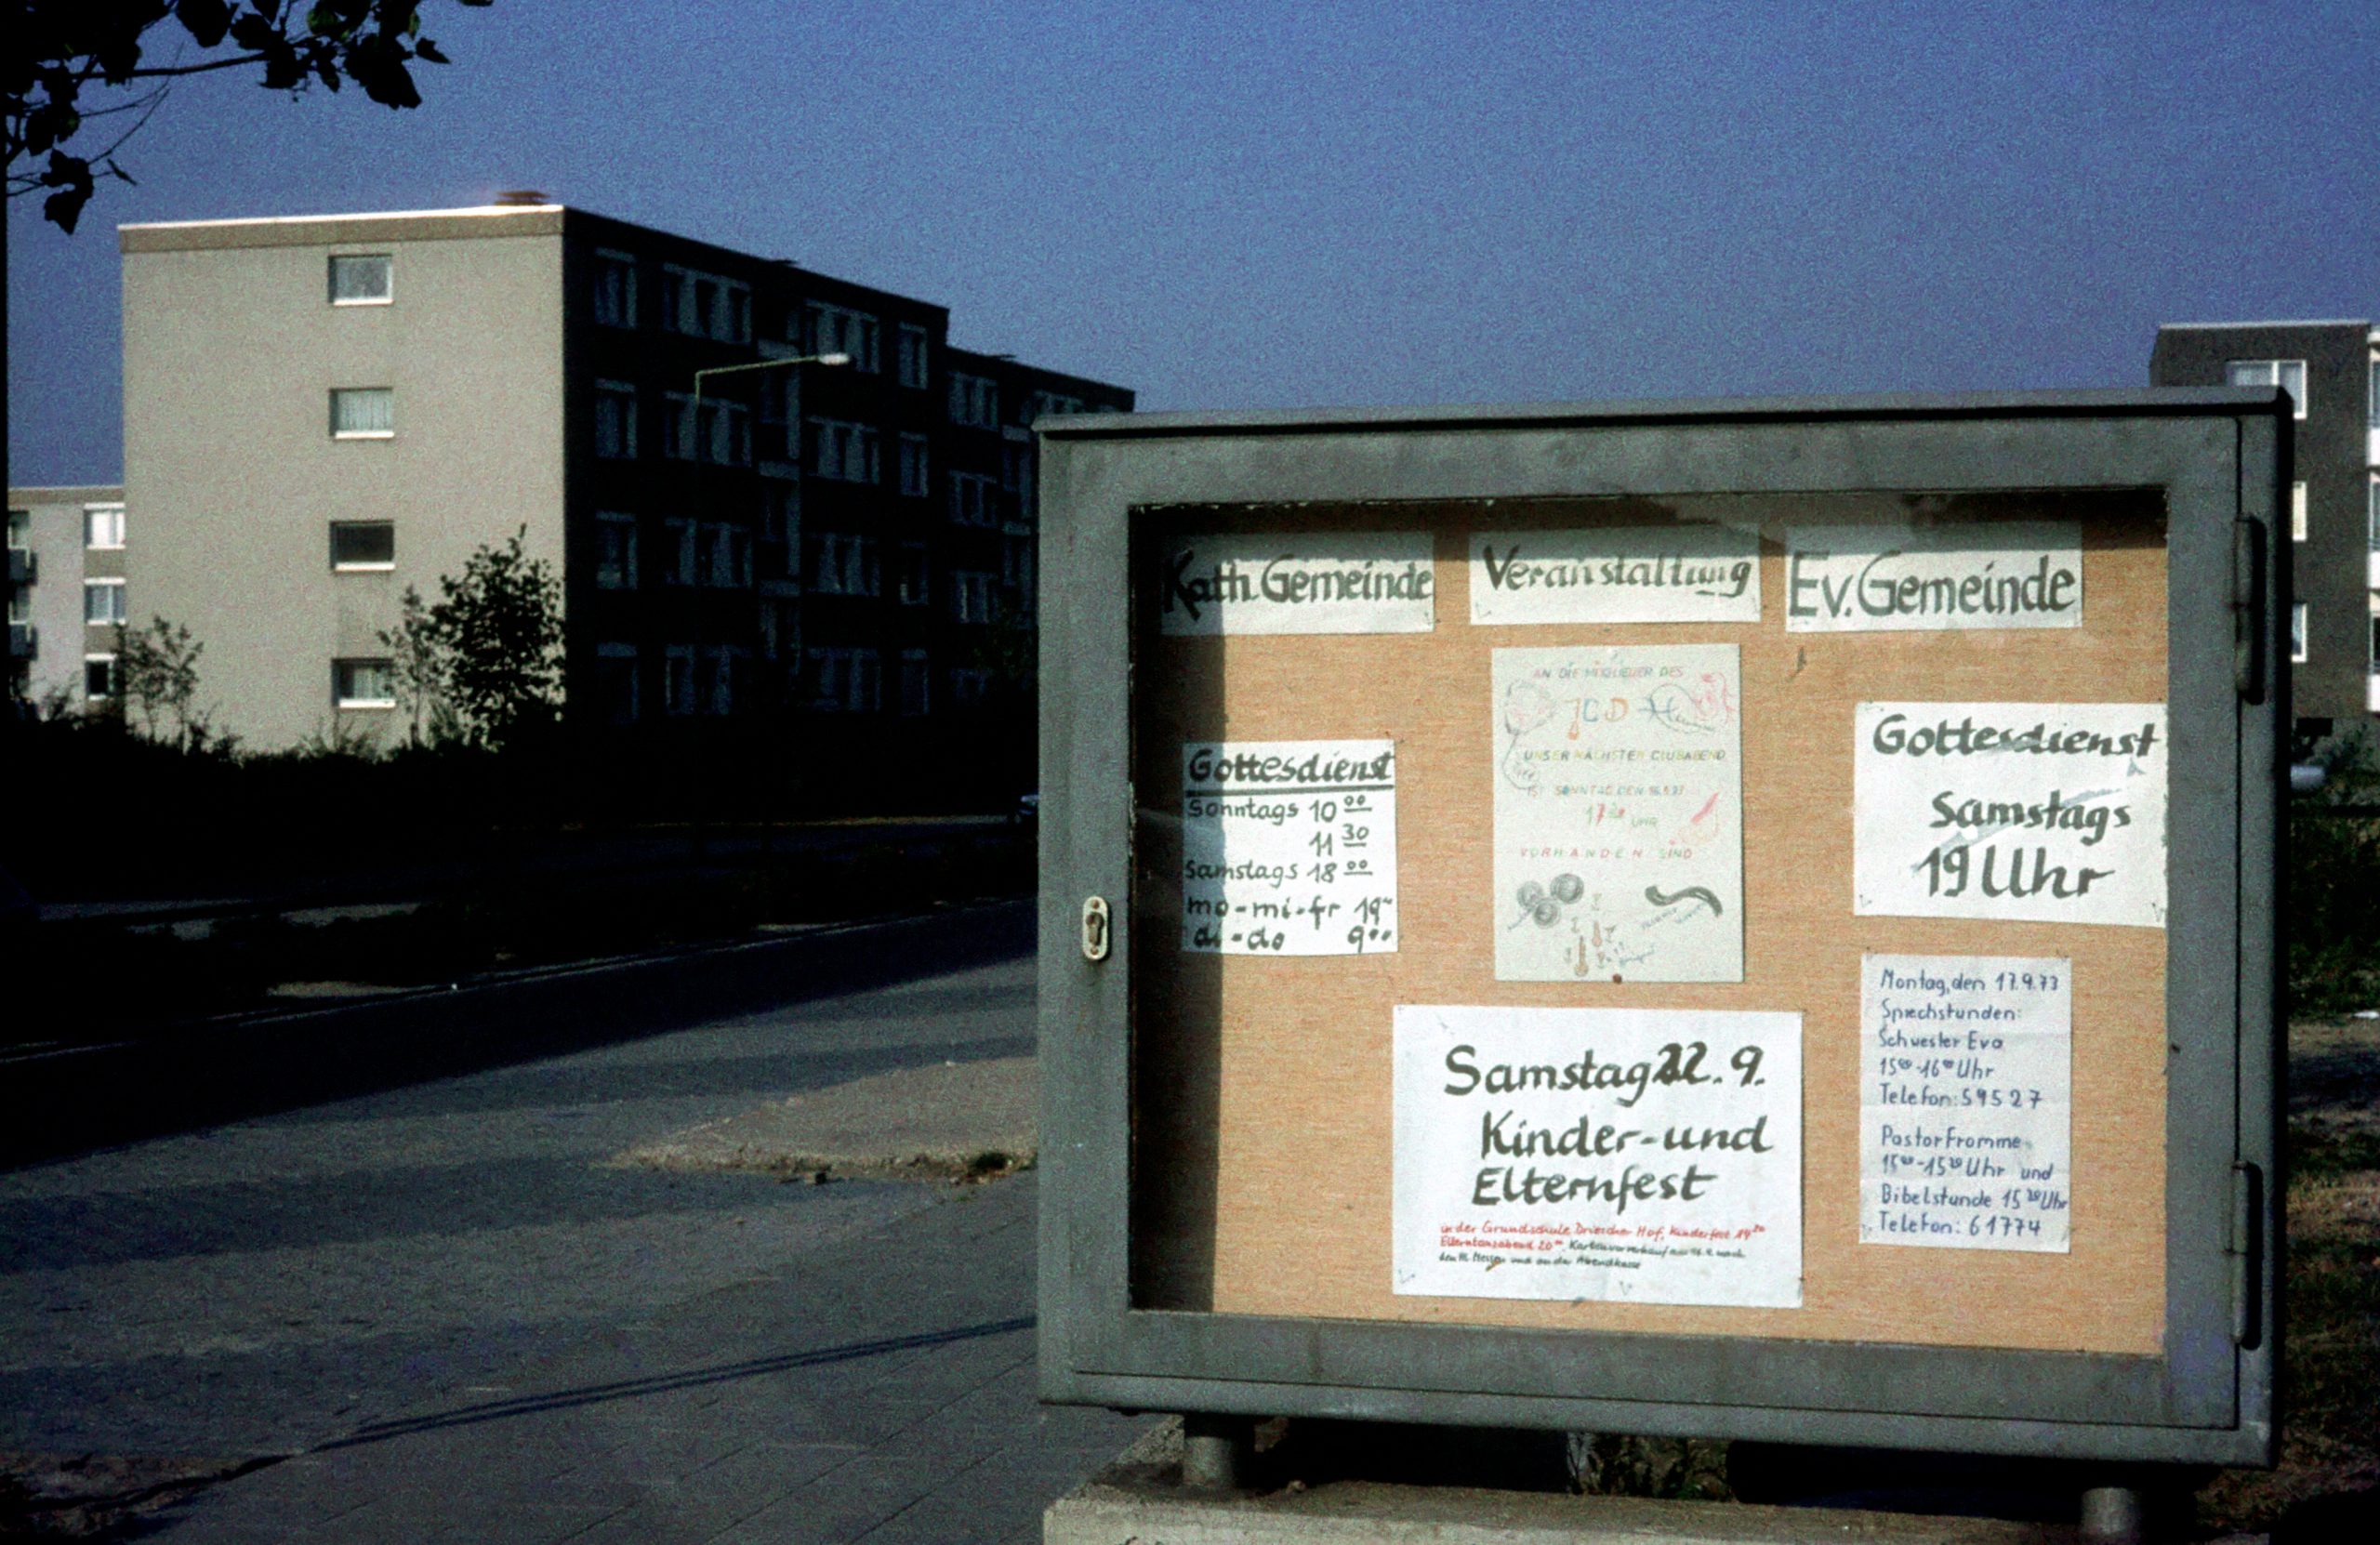 Kath. Gemeinde
Gottesdienst
Sonntags 10 00
11 30
Samstags 18 00
mo-mi-fr 19
di-do 9 00
Veranstaltung
AN DIE MITGLIEDER DES
JCD
UNSER NÄCHSTER CLUBABEND
IST SONNTAG DEN
UHR
VORHANDEN SIND
Samstag 22. 9.
Kinder-und
Elternfest
in der Grundschule Driescher Hof, Kinderfest
Elterntanzabend 20 00. Kartenvorverkauf am 16.9. nach
den Hl. Messen und an der Abendkasse
Ev. Gemeinde
Gottesdienst
Samstags
19 Uhr
Montag, den 17.9.73
Sprechstunden:
Schwester Eva
15 00-16 00 Uhr
Telefon: 59527
Pastor Fromme
15 00-15 30 Uhr und
Bibelstunde 15 30 Uhr
Telefon: 61774